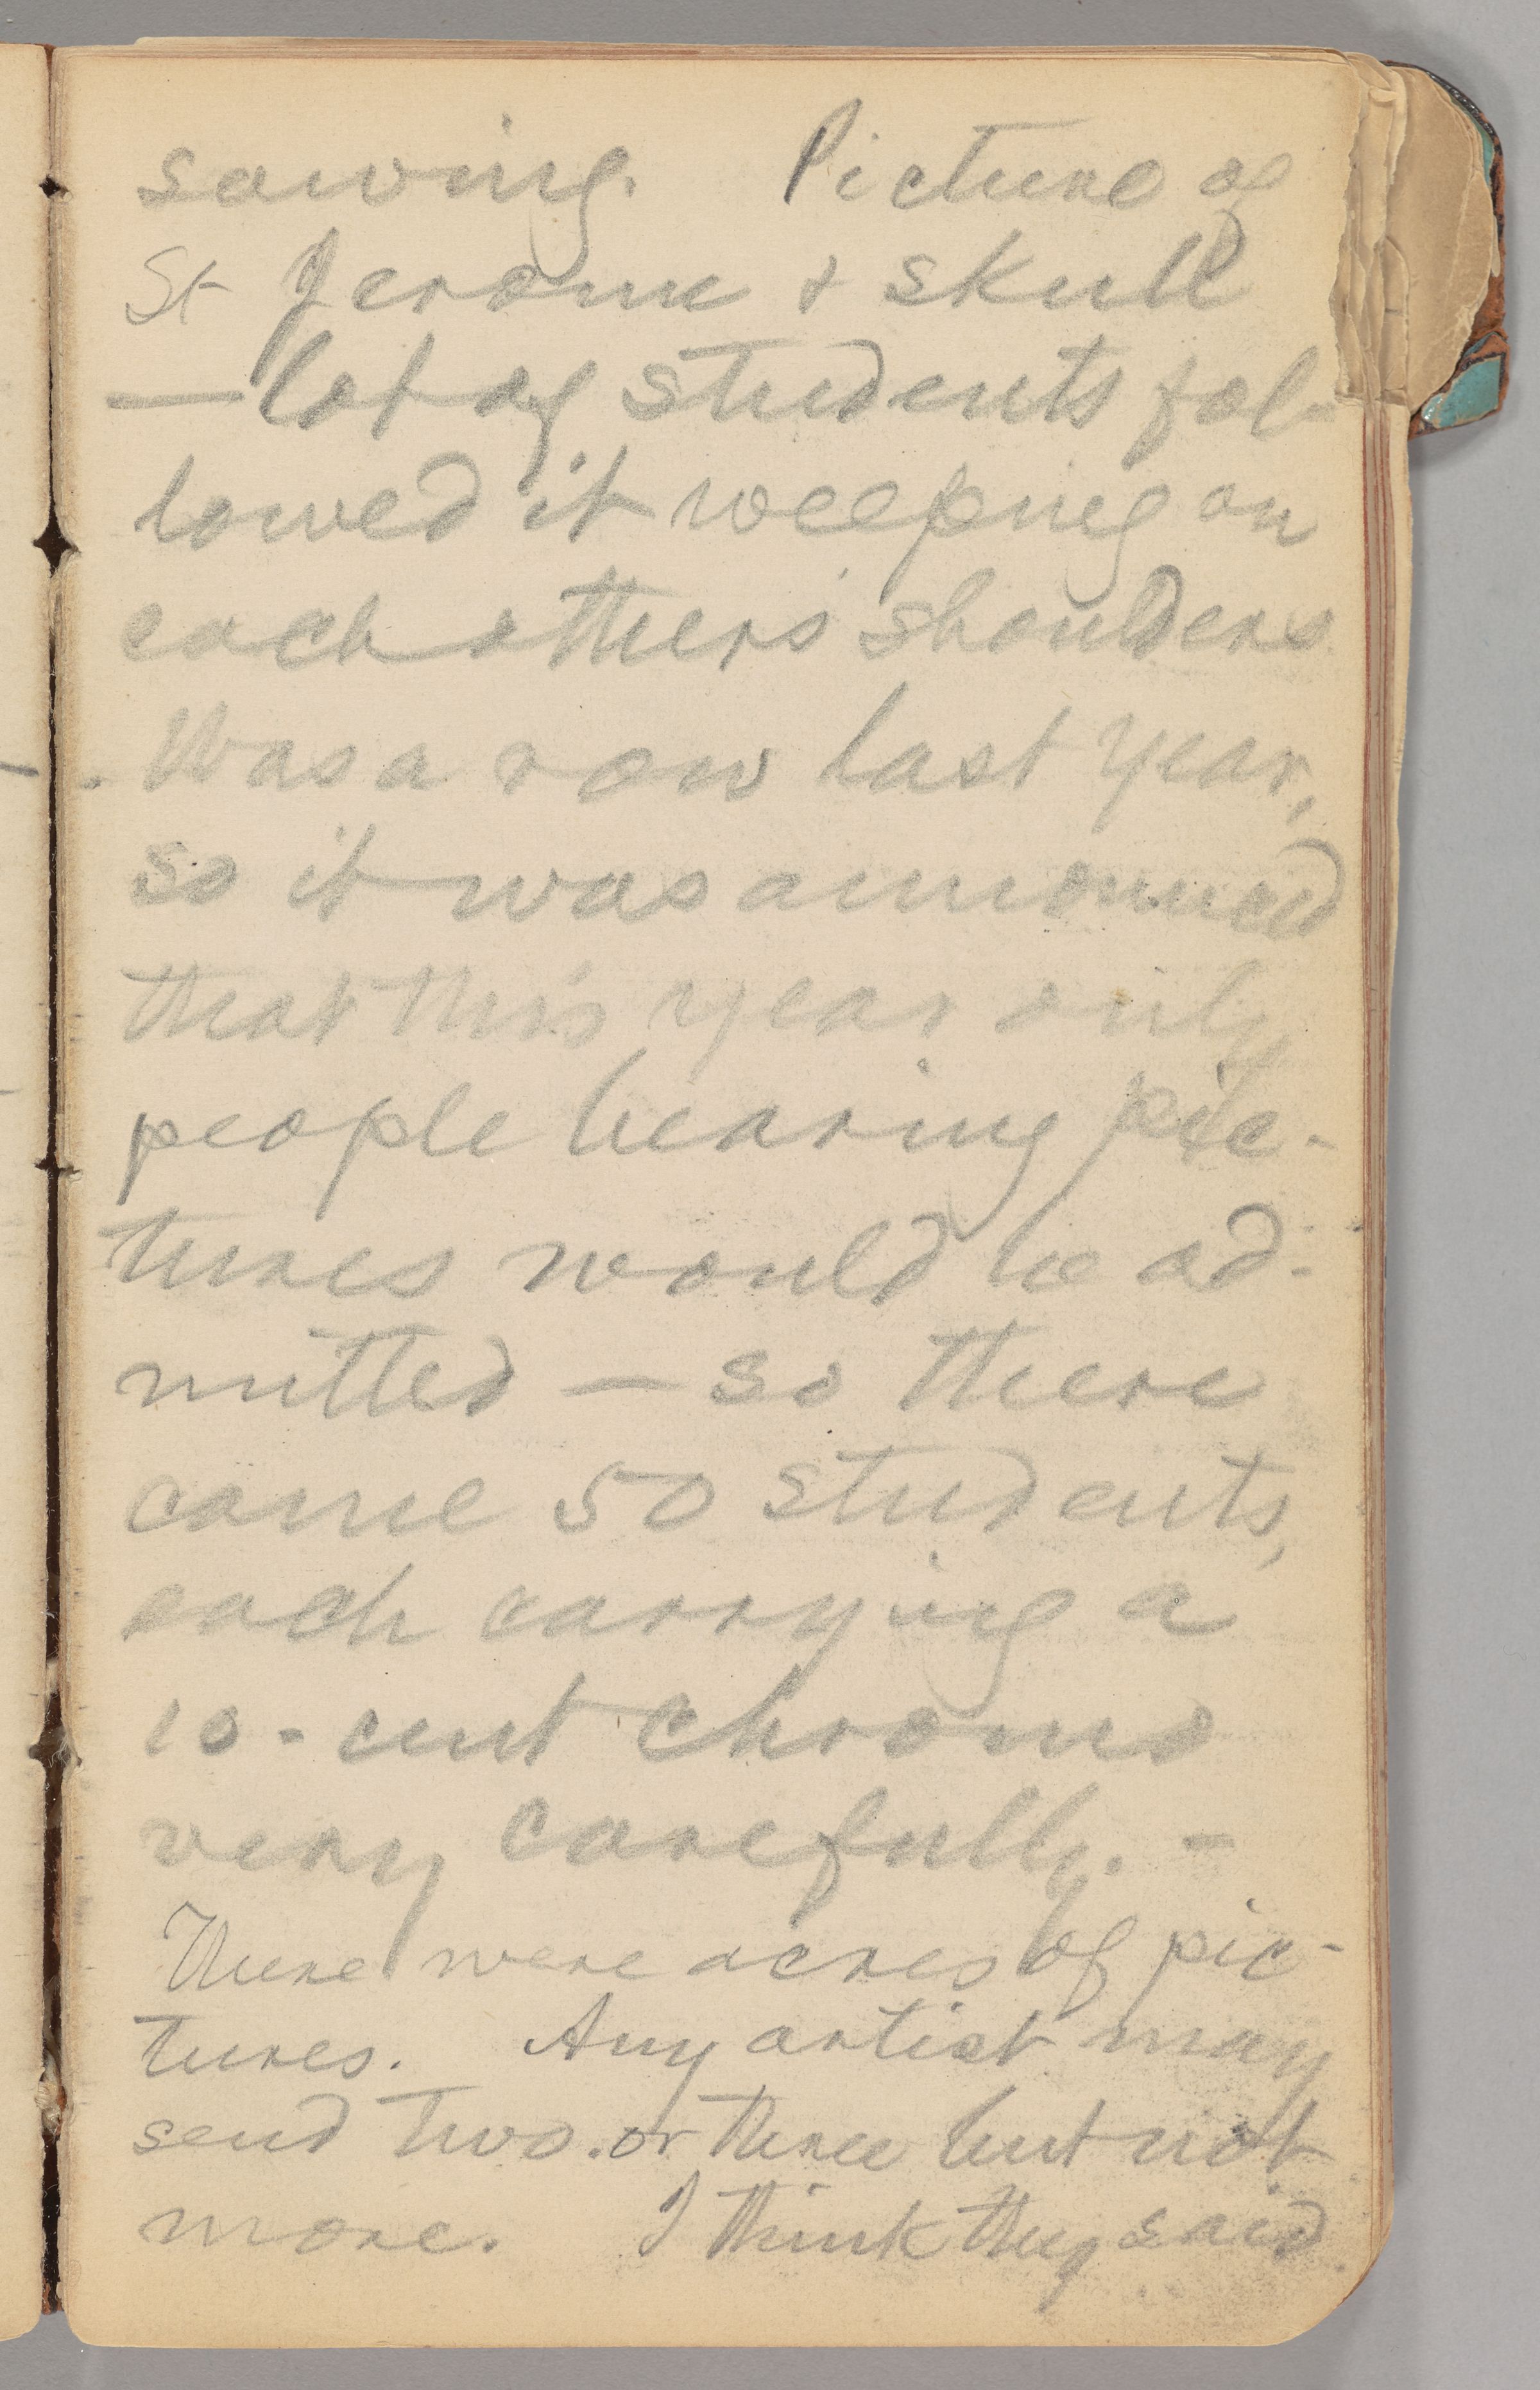 sawing. Picture of
St Jerome & skull
— lot of students fol-
lowed it weeping on
each others' shoulders
Was a row last year,
so it was announced
that this year only
people bearing pic-
tures would be ad-
mitted — so there
came 50 students,
each carrying a
10-cent chromo
very carefully. –
There were acres of pic-
tures. Any artist may
send two or three but not
more. I think they said